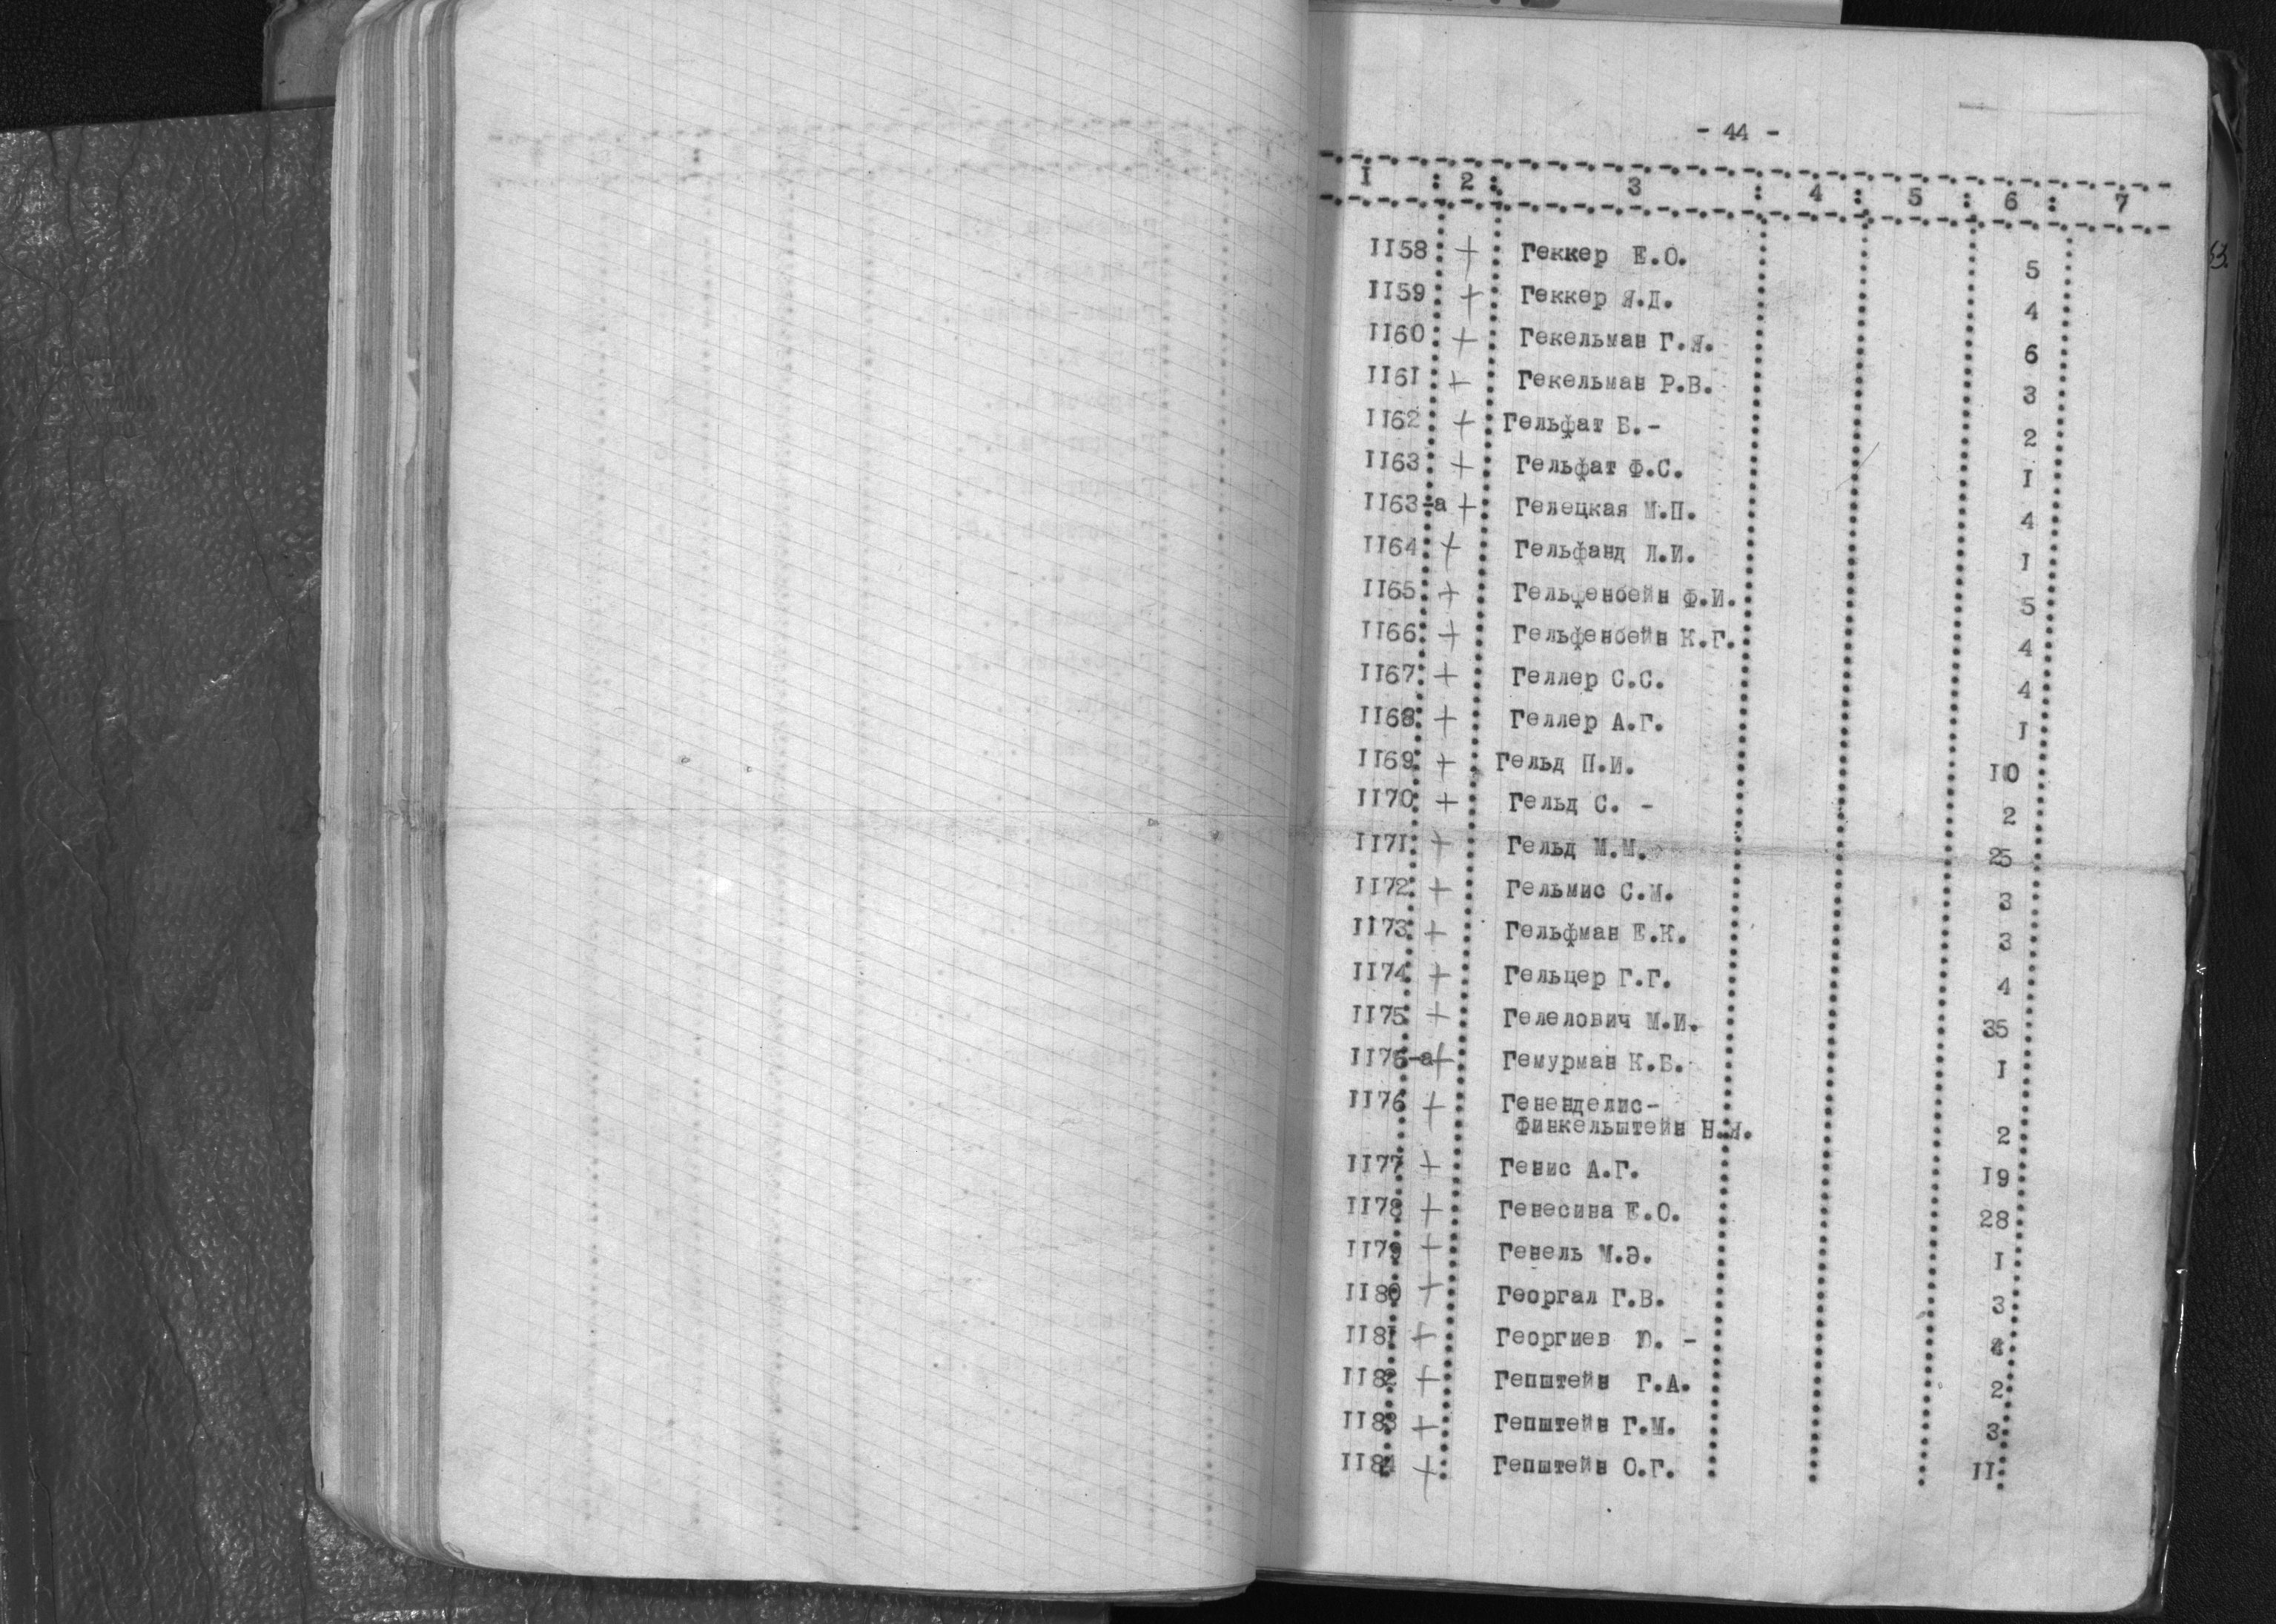 - 44 -
I : 2 : 3 : 4 : 5 : 6 : 7
II58 + Геккер Е.О. 5
II59 + Геккер Я.Д. 4
II60 + Гекельман Г.Я. 6
II6I + Гекельман Р.В. 3
II62 + Гельфат Б.- 2
II63 + Гельфат Ф.С. I
II63-а + Гелецкая М.П. 4
II64 + Гельфанд Л.И. I
II65 + Гельфенбейн Ф.И. 5
II66 + Гельфенбейн К.Г. 4
II67 + Геллер С.С. 4
II68 + Геллер А.Г. I
II69 + Гельд П.И. I0
II70 + Гельд С. - 2
II7I + Гельд М.М. 25
II72 + Гельмис С.М. 3
II73 + Гельфман Е.К. 3
II74 + Гельцер Г.Г. 4
II75 + Гелелович М.И. 35
II75-а + Гемурман К.Б. I
II76 + Гененделис-
Финкельштейн Н.Я. 2
II77 + Генис А.Г. I9
II78 + Генесина Е.О. 28
II79 + Генель М.Э. I
II80 + Георгал Г.В. 3
II8I + Георгиев Ю. -
II82 + Гепштейн Г.А. 2
II83 + Гепштейн Г.М. 3
II84 + Гепштейн О.Г. II